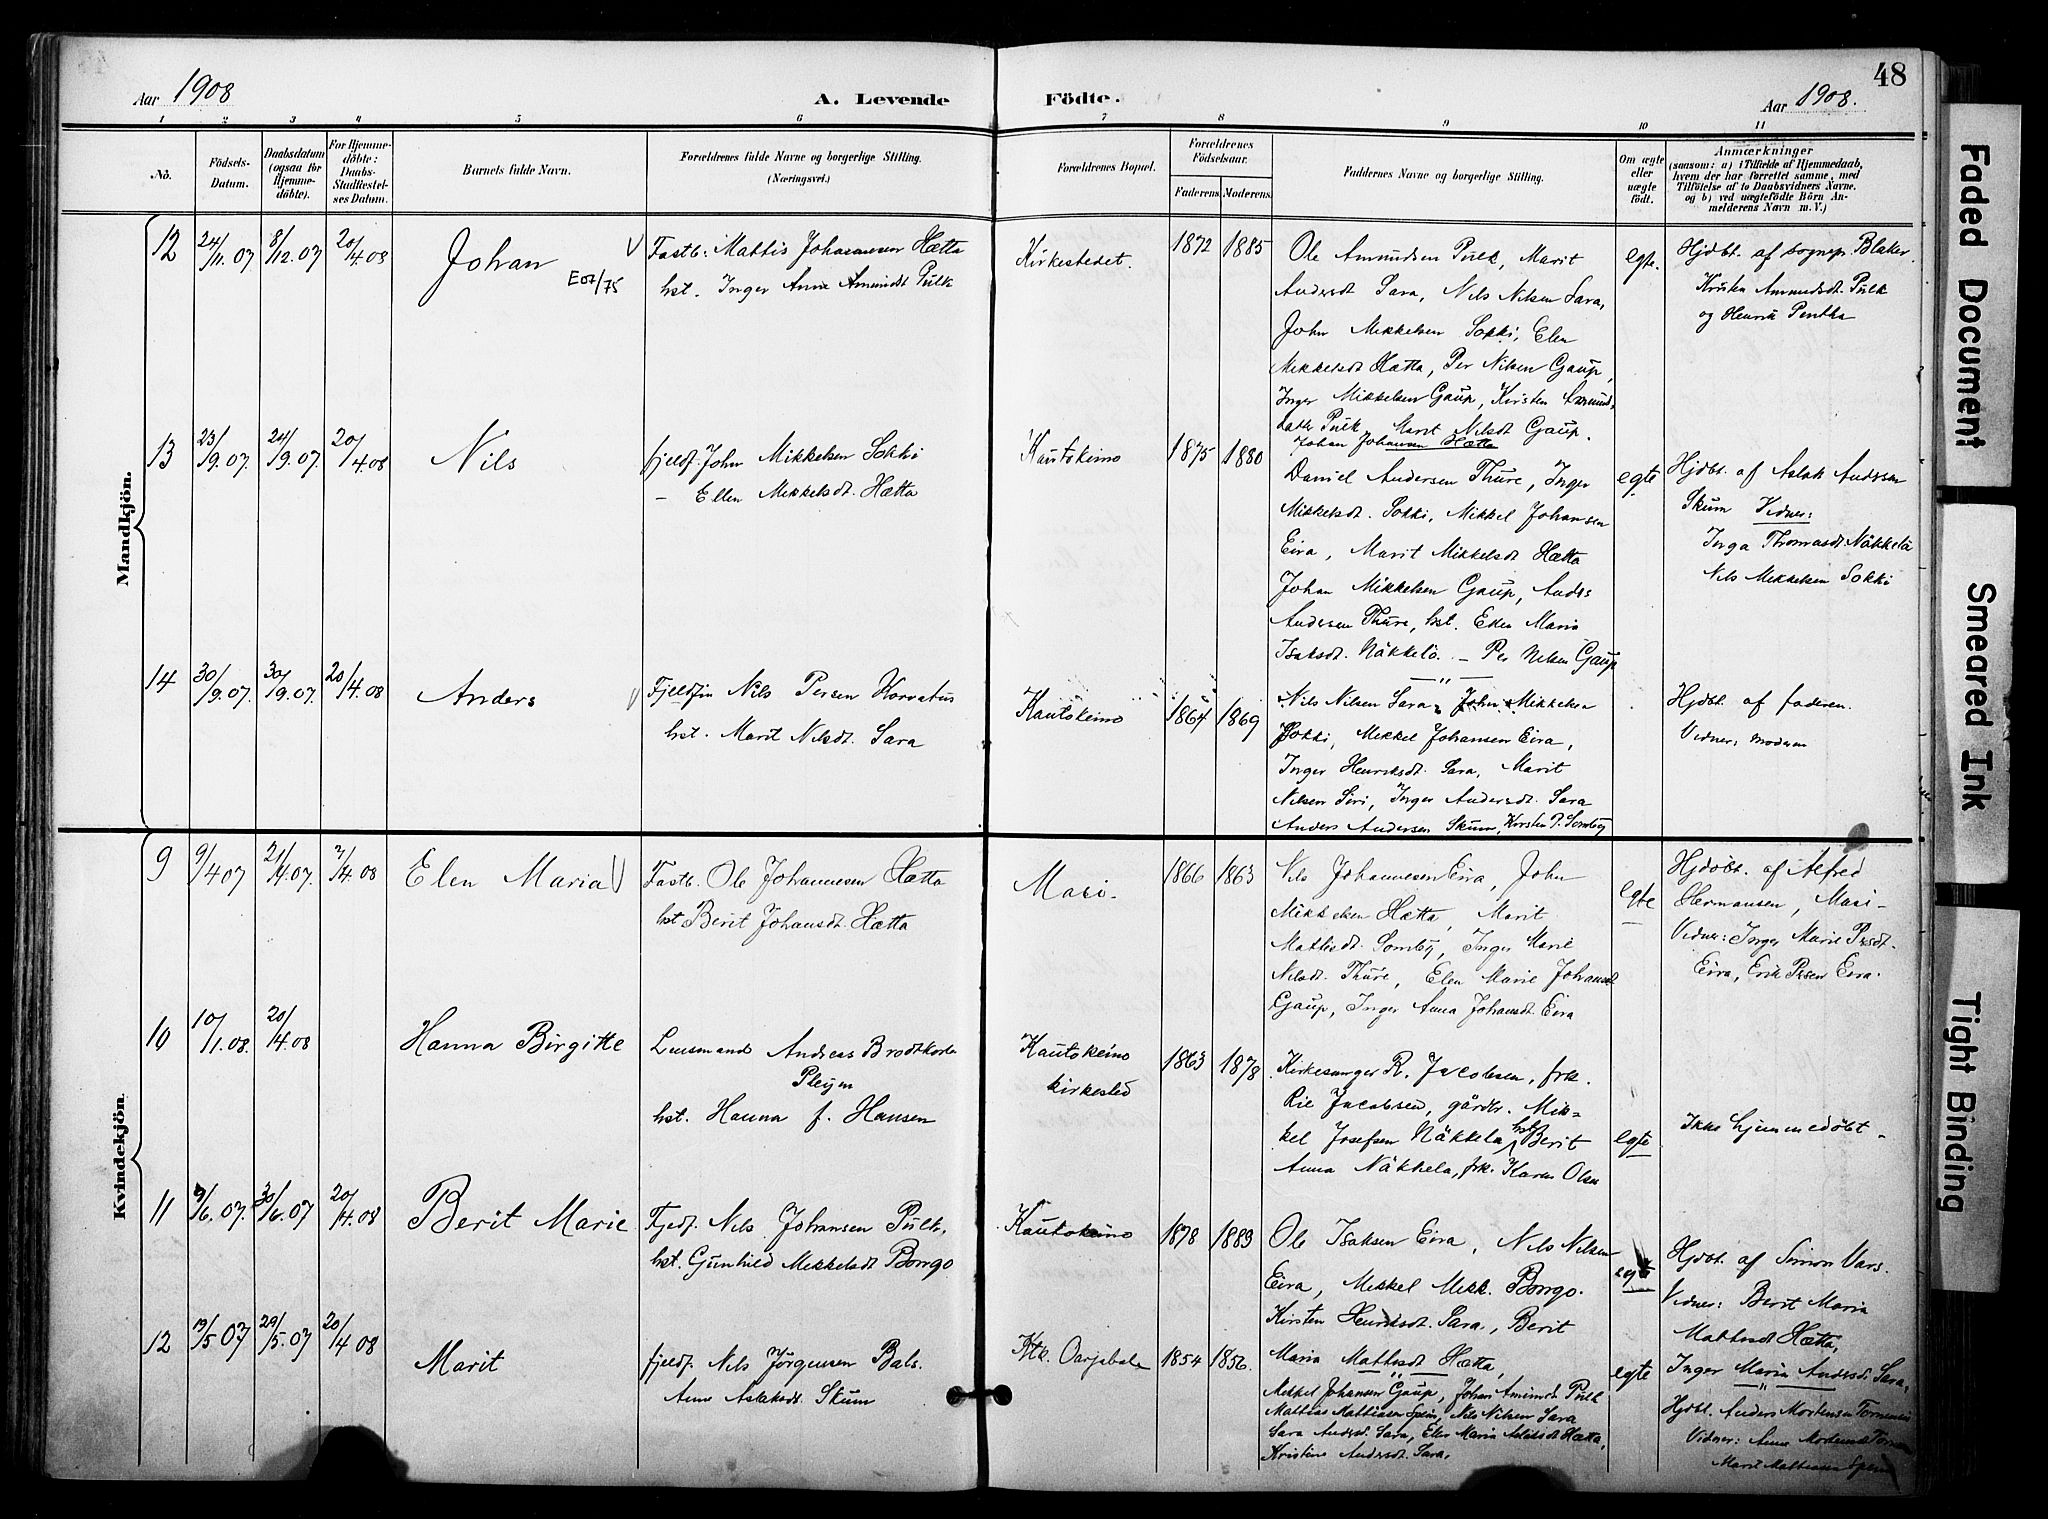 Aar 1908
A. Levende
Födte.
Aar 1908.
48
1 2 3 4 5 6 7 8 9 10 11
No.
Födsels-
Datum.
Daabsdatum
(ogsaa for
Hjemme-
döbte).
For Hjemme-
döbte:
Daabs-
Stadfæstel-
ses Datum.
Barnets fulde Navn.
Forældrenes fulde Navne og borgerlige Stilling.
(Næringsvei.)
Forældrenes Bopæl.
Forældrenes
Födselsaar.
Faderens
Moderens
Faddernes Navne og borgerlige Stilling.
Om ægte
eller
uægte
födt.
Anmærkninger
(saasom: a) i Tilfælde af Hjemmedaab,
hvem der har forrettet samme, med
Tilföielse af to Daabsvidners Navne.
og b) ved uægtefödte Börn An-
melderens Navn m. V.)
Mandkjön.
12
24/11.07
8/12.07
20/4.08
Johan
E07/75
Fastb: Mattis Johannsen Hætta
hst. Inger Anne Amundsdt Pulk
Kirkestedet.
1872
1885
Ole Amundsen Pulk, Marit
Andersdt Sara, Nils Nilsen Sara,
John Mikkelsen Sokki, Elen
Mikkelsdt Hætta, Per Nilsen Gaup,
Inger Mikkelsen Gaup, Kirsten Amund,
datter Pulk, Marit Nilsdt Gaup.
Johan Johansen Hætta
egte.
Hjdbt. af sognepr. Blaker.
Kirsten Amundsdt. Pulk
og Henrik Pentha
13
23/9.07.
24/9.07.
20/4.08
Nils
fjeldf. John Mikkelsen Sokki
– Ellen Mikkelsdt. Hætta
Kautokeino
1875
1880
Daniel Andersen Thure, Inger
Mikkelsdt. Sokki, Mikkel Johansen
Eira, Marit Mikkelsdt Hætta
Johan Mikkelsen Gaup, Anders
Andersen Thure, hst. Elen Maria
Isaksdt. Näkkelä. – Per Nilsen Gaup
egte
Hjdbt. af Aslak Andersen
Skum Vidner:
Inga Thomasdt. Näkkelä
Nils Mikkelsen Sokki
14
30/9.07.
30/9.07.
20/4.08
Anders
Fjeldfin Nils Persen Horvatus
hst. Marit Nilsdt. Sara
Kautokeino
1864
1869
Nils Nilsen Sara, John Mikkelsen
Sokki, Mikkel Johansen Eira,
Inger Henriksdt. Sara, Marit
Nilsen Siri, Inger Andersdt. Sara
Anders Andersen Skum, Kirsten P. Somby
Hjdbt. af faderen.
Vidner: moderen
Kvindekjön.
9
9/4 07
21/4.07.
7/4.08
Elen Maria
Fastb. Ole Johannesen Hætta
hst Berit Johansdt. Hætta
Masi.
1866
1863
Nils Johannesen Eira, John
Mikkelsen Hætta, Marit
Mathisdt. Somby, Inger Marie
Nilsdt. Thure, Elen Marie Johansdt
Gaup, Inger Anna Johansdt. Eira
egte
Hjdöbt. af Alfred
Hermansen, Masi –
Vidner: Inger Marie Prsdt.
Eira, Erik Prsen Eira.
10
10/1.08.
20/4.08
Hanna Birgitte
Lensmand Andreas Brodtkorb
Pleym
hst. Hanna f. Hansen
Kautokeino
kirkested
1863
1878
Kirkesanger R. Jacobsen, frk.
Rie Jacobsen, gårdbr. Mik-
kel Josefsen Näkkela hst Berit
Anna Näkkela, frk. Karen Olsen
egte
Ikke hjemmedöbt –
11
9/6.07.
30/6.07
20/4.08
Berit Marie
Fjeldf. Nils Johansen Pulk,
hst. Gunhild Mikkelsdt Bongo
Kautokeino
1878
1883
Ole Isaksen Eira, Nils Nilsen
Eira, Mikkel Mikk. Bongo.
Kirsten Henriksdt. Sara, Berit
Maria Mathisdt. Hætta,
egte
Hjdbt. af Simon Vars.
Vidner: Berit Maria
Mathisdt Hætta,
Inger Maria Andersdt Sara,
12
19/5 07
29/5.07
20/4 08
Marit
fjeldf. Nils Jörgensen Bals.
Anne Aslaksdt. Skum
Ktk. Oarjebale
1854
1856.
Mikkel Johansen Gaup, Johan Amundsdt Pulk
Mathias Mathiasen Spein, Nils Nilsen Sara
Sara Andersdt. Sara, Elen Maria Aslaksdt Hætta,
Kristine Andersdt. Sara.
egte
Hjdbt. Anders Mortensen Tornensis
Vidner: Anne Mortensdt Tornen
Marit Mathiasen Spein
Faded Document
Smeared Ink
Tight Binding